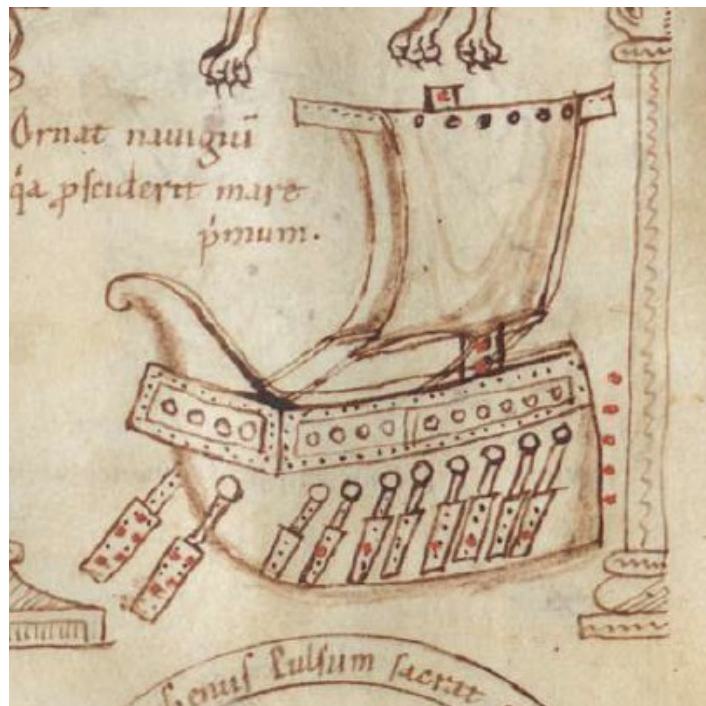 Ornat nauigiū
q̇a ꝓsciderit mare
pͥmum.
henus Pulsum sacrat